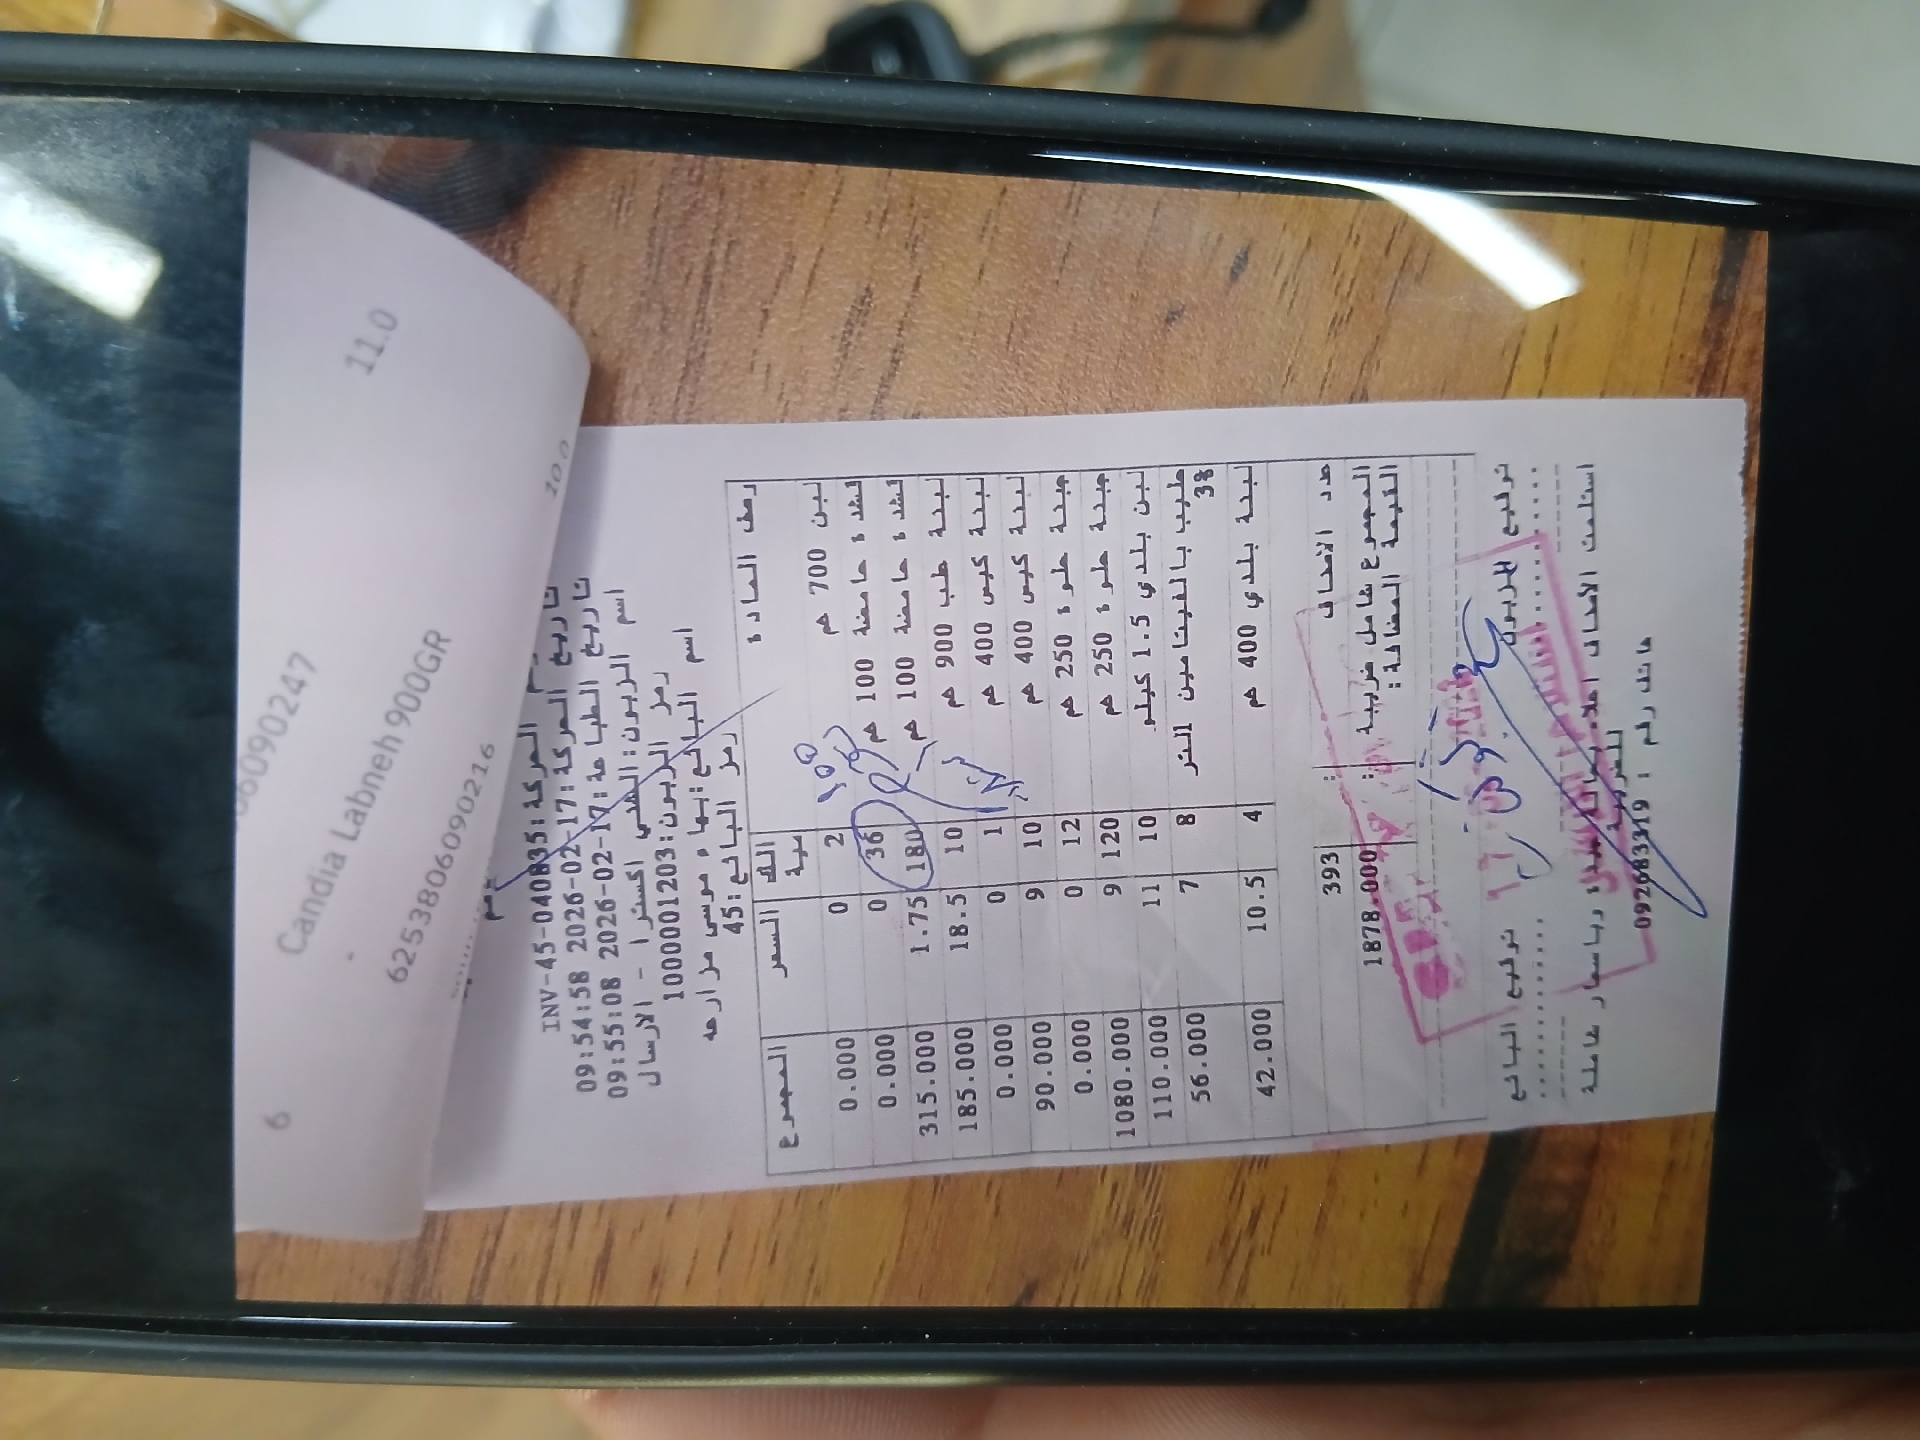 6253806090247
Candia Labneh 900GR
11.0
6
6253806090216
10.0
رقم الحركة:INV-45-040835
تاريخ الحركة:17-02-2026 09:54:58
تاريخ الطباعة:17-02-2026 09:55:08
اسم الزبون: الشني اكسترا - الارسال
رمز الزبون:1000001203
اسم البائع:بهاء موسى مزارعه
رمز البائع:45
وصف المادة الكمية السعر المجموع
لبن 700 غم 2 0 0.000
قشدة حامضة 100 غم 36 0 0.000
قشدة حامضة 100 غم 180 1.75 315.000
لبنة علب 900 غم 10 18.5 185.000
لبنة كيس 400 غم 1 0 0.000
لبنة كيس 400 غم 10 9 90.000
جبنة حلوة 250 غم 12 0 0.000
جبنة حلوة 250 غم 120 9 1080.000
لبن بلدي 1.5 كيلو 10 11 110.000
حليب بالفيتامين التر 3% 8 7 56.000
لبنة بلدي 400 غم 4 10.5 42.000
عدد الاصناف : 393
المجموع شامل ضريبة القيمة المضافة: : 1878.000
توقيع الزبون توقيع البائع
استلمت الاصناف اعلاه بحالة جيدة وباسعار شاملة للضريبة
هاتف رقم : 092683319